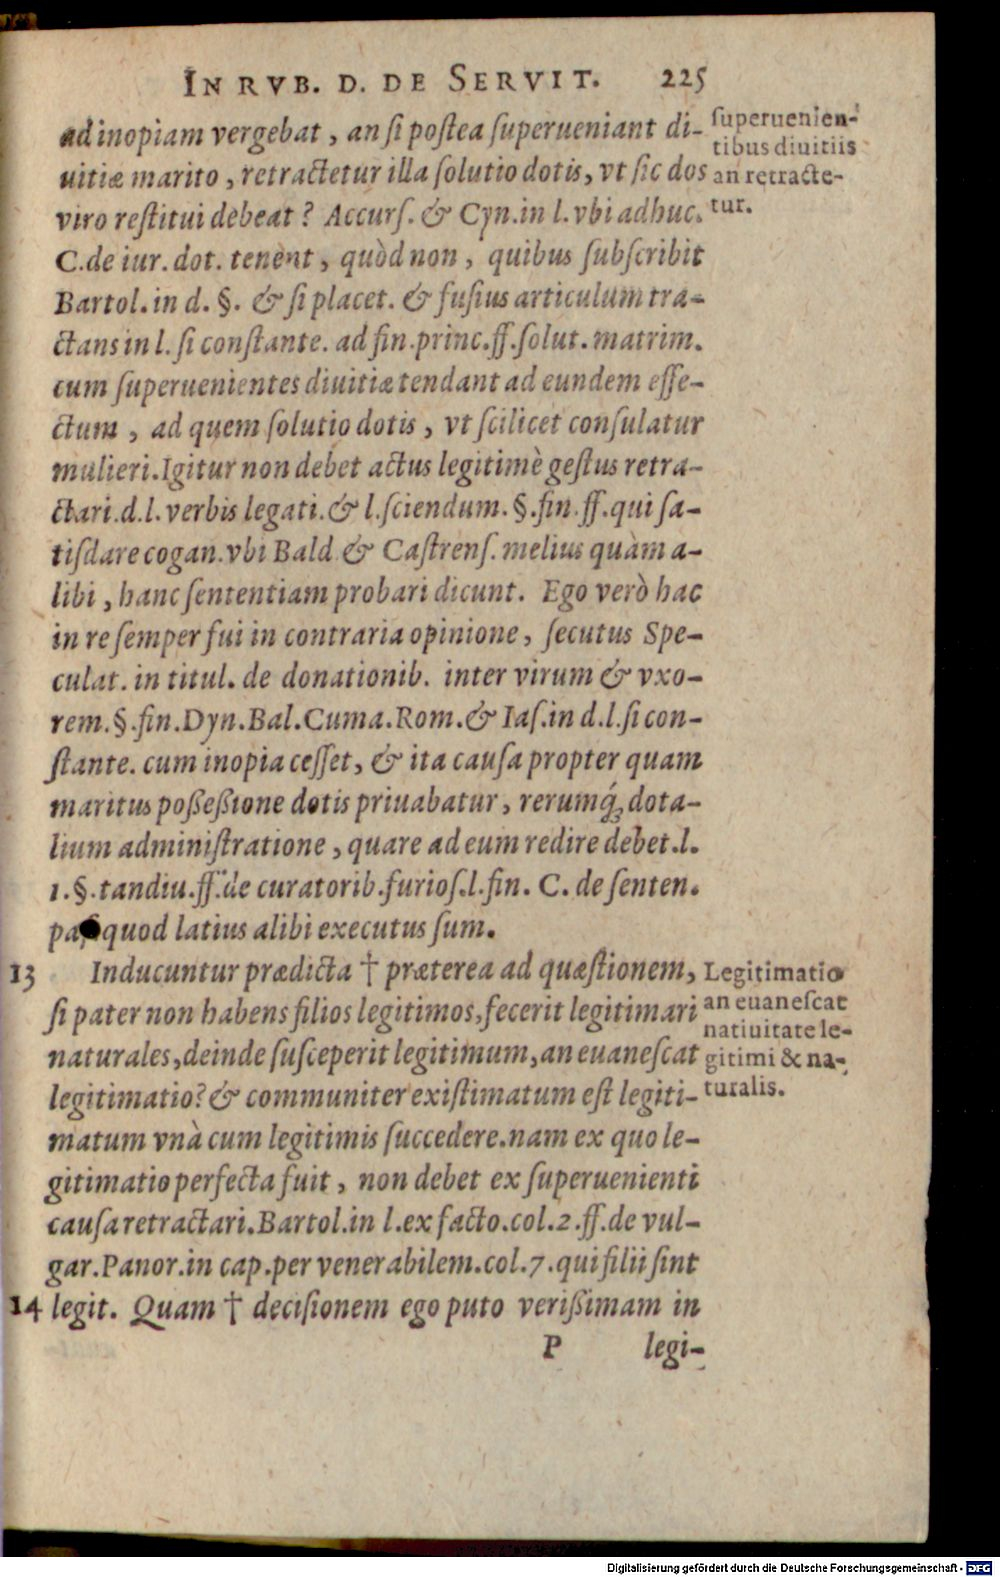 IN RVB. D. DE SERVIT. 225
ad inopiam vergebat, an ſi poſtea ſuperueniant di-
uitiæ marito, retractetur illa ſolutio dotis, vt ſic dos
viro reſtitui debeat? Accurſ. & Cyn. in l. vbi adhuc.
C. de iur. dot. tenent, quòd non, quibus ſubſcribit
Bartol. in d. §. & ſi placet. & fuſius articulum tra-
ctans in l. ſi conſtante. ad fin. princ. ff. ſolut. matrim.
cum ſuperuenientes diuitiæ tendant ad eundem effe-
ctum, ad quem ſolutio dotis, vt ſcilicet conſulatur
mulieri. Igitur non debet actus legitimè geſtus retra-
ctari. d. l. verbis legati. & l. ſciendum. §. fin. ff. qui ſa-
tiſdare cogan. vbi Bald & Caſtrenſ. melius quàm a-
libi, hanc ſententiam probari dicunt. Ego verò hac
in re ſemper fui in contraria opinione, ſecutus Spe-
culat. in titul. de donationib. inter virum & vxo-
rem. §. fin. Dyn. Bal. Cuma. Rom. & Iaſ. in d. l. ſi con-
ſtante. cum inopia ceſſet, & ita cauſa propter quam
maritus poßeßione dotis priuabatur, rerumq́; dota-
lium adminiſtratione, quare ad eum redire debet. l.
1. §. tandiu. ff. de curatorib. furioſ. l. fin. C. de ſenten.
paſ quod latius alibi executus ſum.
ſuperuenien-
tibus diuitiis
an retracte-
tur.
13 Inducuntur prædicta † præterea ad quæſtionem,
ſi pater non habens filios legitimos, fecerit legitimari
naturales, deinde ſuſceperit legitimum, an euaneſcat
legitimatio? & communiter exiſtimatum eſt legiti-
matum vnà cum legitimis ſuccedere. nam ex quo le-
gitimatio perfecta fuit, non debet ex ſuperuenienti
cauſa retractari. Bartol. in l. ex facto. col. 2. ff. de vul-
gar. Panor. in cap. per venerabilem. col. 7. qui filii ſint
14 legit. Quam † deciſionem ego puto verißimam in
Legitimatio
an euaneſcat
natiuitate le-
gitimi & na-
turalis.
P legi-
Digitalisierung gefördert durch die Deutsche Forschungsgemeinschaft - DFG